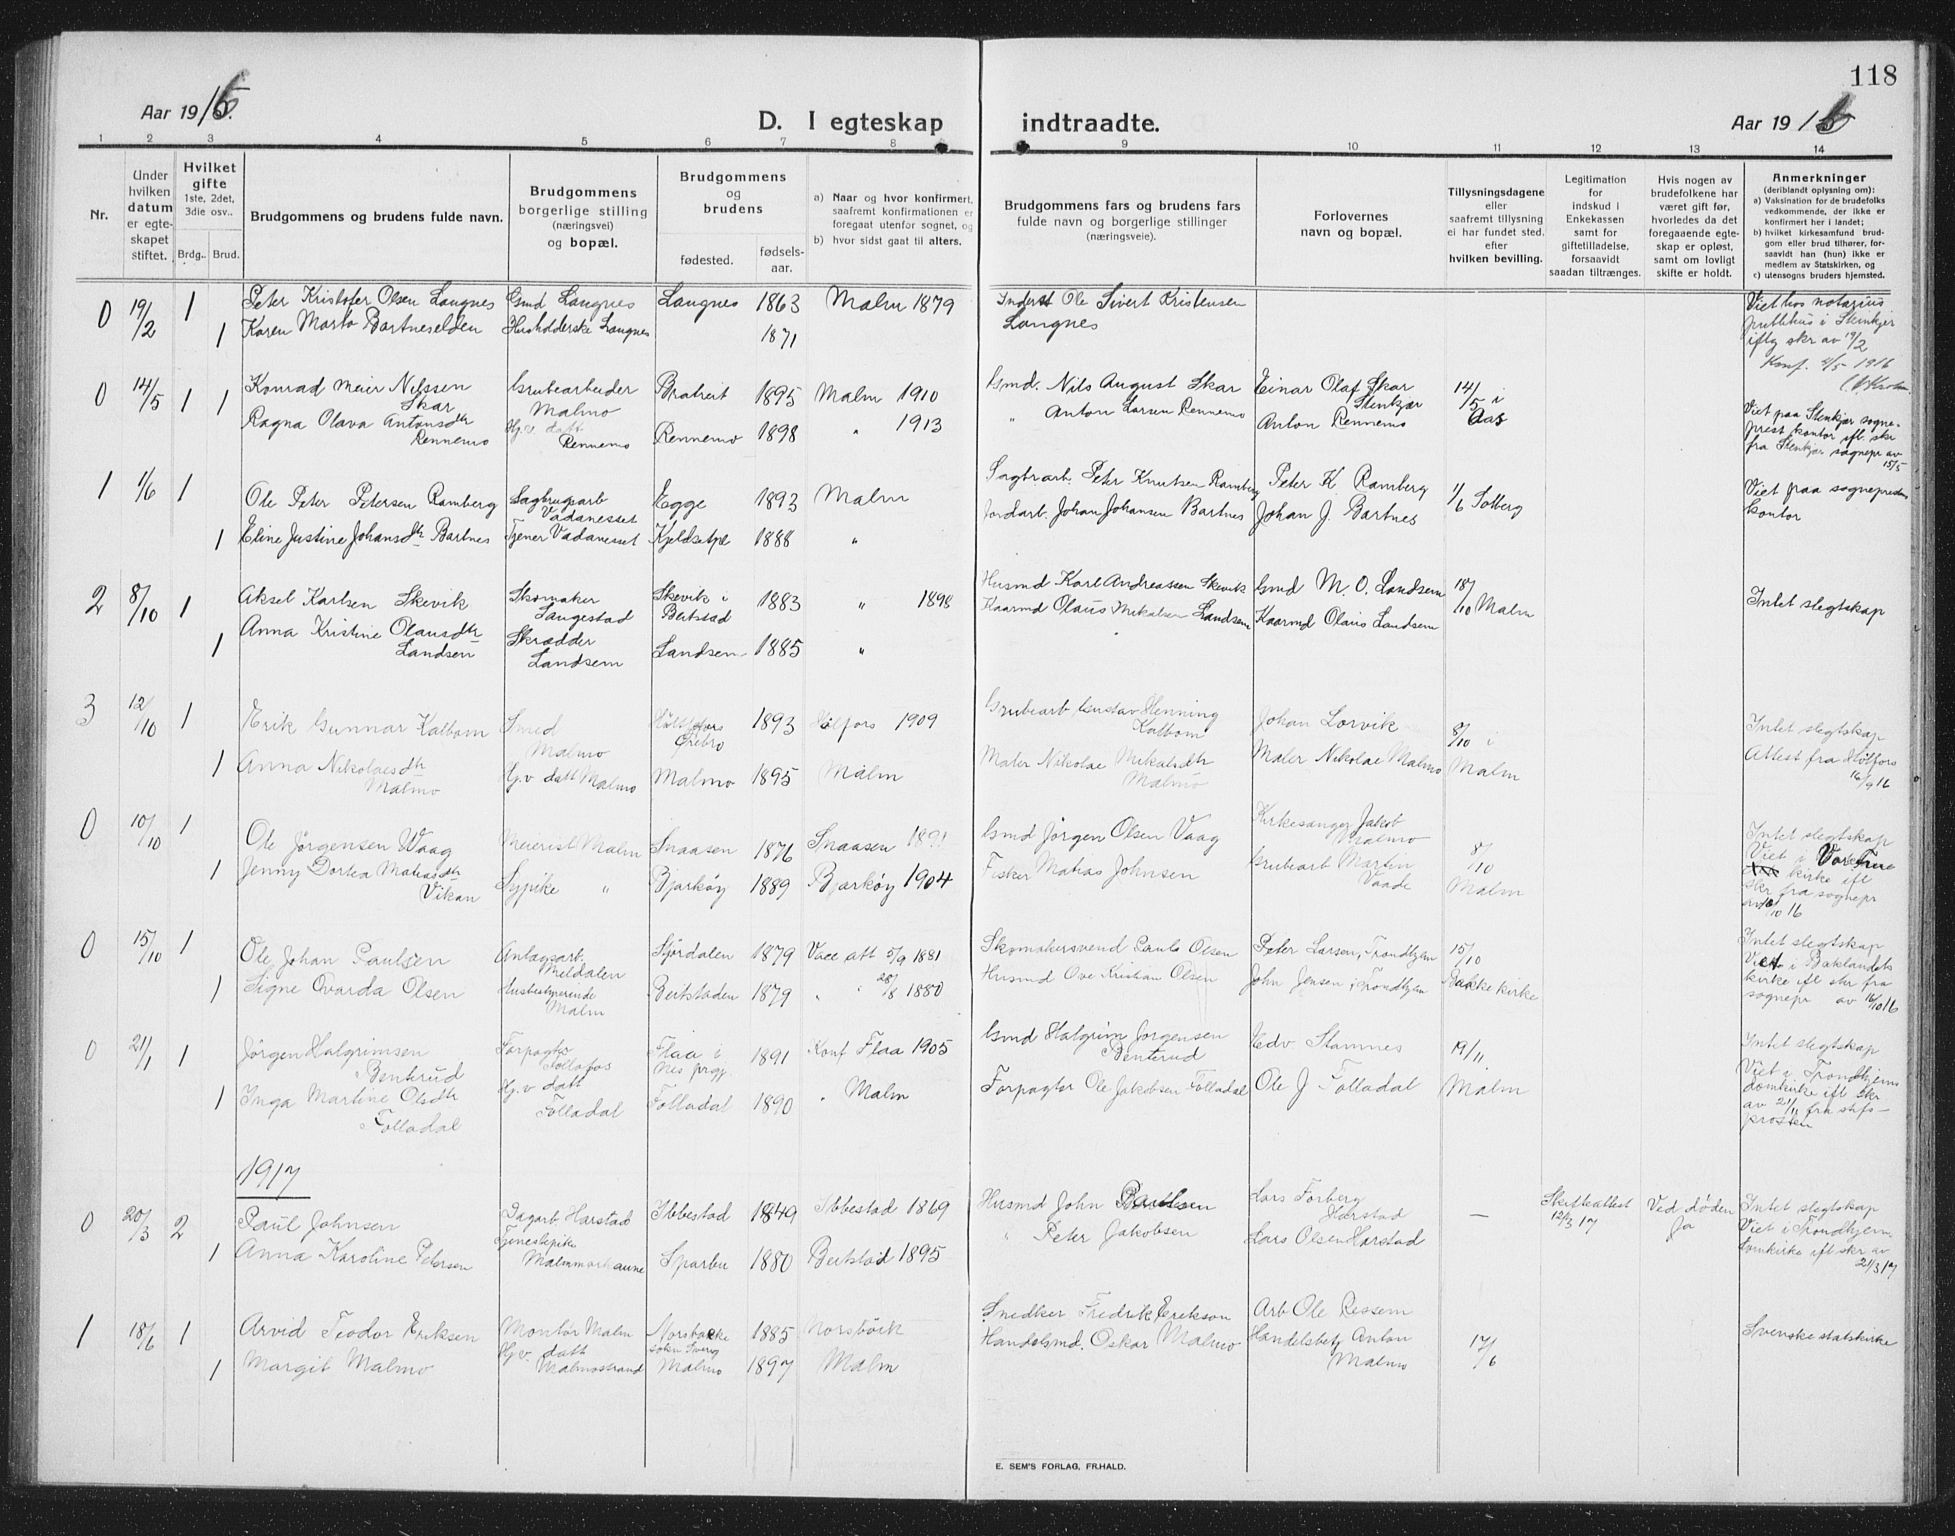 118
Aar 1916.
D. I egteskap indtraadte.
Aar 1916
1 2 3 4 5 6 7 8 9 10 11 12 13 14
Nr.
Under hvilken datum er egteskapet stiftet.
Hvilket gifte 1ste, 2det, 3die osv..
Brdg.. Brud.
Brudgommens og brudens fulde navn.
Brudgommens borgerlige stilling (næringsvei) og bopæl.
Brudgommens og brudens
fødested.
fødsels-aar.
a) Naar og hvor konfirmert, saafremt konfirmationen er foregaat utenfor sognet, og
b) hvor sidst gaat til alters.
Brudgommens fars og brudens fars fulde navn og borgerlige stillinger (næringsveie).
Forlovernes navn og bopæl.
Tillysningsdagene eller saafremt tillysning ei har fundet sted. efter hvilken bevilling.
Legitimation for indskud i Enkekassen samt for giftetilladelse, forsaavidt saadan tiltrænges.
Hvis nogen av brudefolkene har været gift før, hvorledes da det foregaaende egteskap er opløst, samt om lovligt skifte er holdt.
Anmerkninger (deriblandt oplysning om):
a) Vaksination for de brudefolks vedkommende, der ikke er konfirmert her i landet;
b) hvilket kirkesamfund brudgom eller brud tilhører, forsaavidt han (hun) ikke er medlem av Statskirken, og
c) utensogns bruders hjemsted.
0 19/2 1 Peter Kristofer Olsen Langnes Gmd Langnes Langnes 1863 Malm 1879 Inderst Ole Sivert Kristensen Langnes
1 Karen Marta Bartneselden Husholderske Langnes 1871
Viet hos notarius publikus i Stenkjer iflg skr av 19/2
Konf. 4/5 1916
0 14/5 1 1 Konrad Meier Nilssen Skar Grubearbeider Malmo 1895 Malm 1910 Gmd. Nils August Skar Einar Olaf Skar Stenkjær 14/5 i Aas
Ragna Olava Antonsdtr Rennemo Hj.v. datt Rennemo Rennemo 1898 " 1913 " Anton Larsen Rennemo Anton Rennemo
Viet paa Stenkjær sogneprest kontor ifl. skr fra Stenkjær sognepr av 15/5
1 1/6 1 Ole Peter Petersen Ramberg Sagbrugsarb Vadanesset Egge 1893 Malm Sagbrarb. Peter Knutsen Ramberg Peter K. Ramberg 1/6 Solberg
1 Eline Justine Johansdtr Bartnes Tjener Vadanesset 1888 " Jordarb. Johan Johansen Bartnes Johan J. Bartnes
Viet paa sognepredens kontor
2 8/10 1 Aksel Karlsen Skevik Skomaker Langestad Skevik i Beitstad 1883 " 1898 Husmd Karl Andreassen Skevik Gmd M. O. Landsem 18/10 Malm Intet slegtskap
1 Anna Kristine Olausdtr Landsem Skrædder Landsem Landsem 1885 " Kaarmd Olaus Mikalsen Landsem Kaarmd Olaus Landsem
3 12/10 1 Erik Gunnar Kalbom Smed Malmo Örebro 1893 1909 Grubearb Gustav Henning Kalbom Johan Lorvik 8/10 i Malm
1 Anna Nikolaisdtr Malmo Hj.v datt Malmo Malmo 1895 Malm Maler Nikolae Mikalsdtr Malmo Maler Nikolae Malmo
Intet slegtskap Attest fra Hölfors 16/9 16
0 10/10 1 Ole Jørgensen Waag Meierist Malm Snaasen 1876 Snaasen 1891 Gmd Jörgen Olsen Vaag Kirkesanger Jakob Malmo 8/10 Malm
1 Jenny Dortea Matiasdtr Vikan Sypike " Bjarköy 1889 Bjarköy 1904 Fisker Matias Johnsen Grubearb Martin Vaade
Intet slegtskap Viet i Vor Frue kirke ifl skr fra sognepr av 10/10 16
0 15/10 1 Ole Johan Paulsen Anlagsarb. Meldalen Stjørdalen 1879 Vacc att 5/9 1881 Skomakersvend Paulo Olsen Peter Larsen, Trondhjem 15/10
1 Signe Ovarda Olsen Husbestyrerinde Malm Beitstaden 1879 " " 28/8 1880 Husmd Ove Kristian Olsen John Jensen, Trondhjem Bakke kirke
Intet slegtskap Viet i Baklandets kirke ifl skr fra sognepr av 16/10 16
0 21/1 1 Jörgen Halgrimsen Bentrud Forpagter Follafos Flaa i Nes prgj. 1891 Konf Flaa 1905 Gmd Halgrim Jorgensen Bentrud Edv Stamnes 19/11 Malm
1 Inga Martine Olsdtr Folladal Hj.v datt Folladal Folladal 1890 " Malm Forpagter Ole Jakobsen Folladal Ole J Folladal
Intet slegtskap Viet i Trondhjems domkirke ifl skr av 21/11 fra stifsprosten
1917
0 20/3 2 Paul Johnsen Dagarb Harstad Ibbestad 1849 Ibbestad 1869 Husmd John Lars Forberg Harstad — Skifteattest 12/3 17 Ved döden Ja
1 Anna Karoline Petersen Tjenestepike Sparbu 1880 Beitstad 1895 " Peter Jakobsen Lars Olsen Harstad
Intet slegtskap Viet i Trondhjem domkirke ifl skr av 21/3 17
1 18/6 1 Arvid Teodor Eriksen Montör Malm Norsbacke sokn Sverg 1885 Norsbäck Snedker Fredrik Erikson Arb Ole Ressem 17/6 Svenske statskirke
1 Margit Malmo Hj.v. datt Malmostrand Malmo 1897 Malm Handelsmd. Oskar Malmo Handelsbetj Anton Malmo
E. SEM'S FORLAG, FR.HALD.